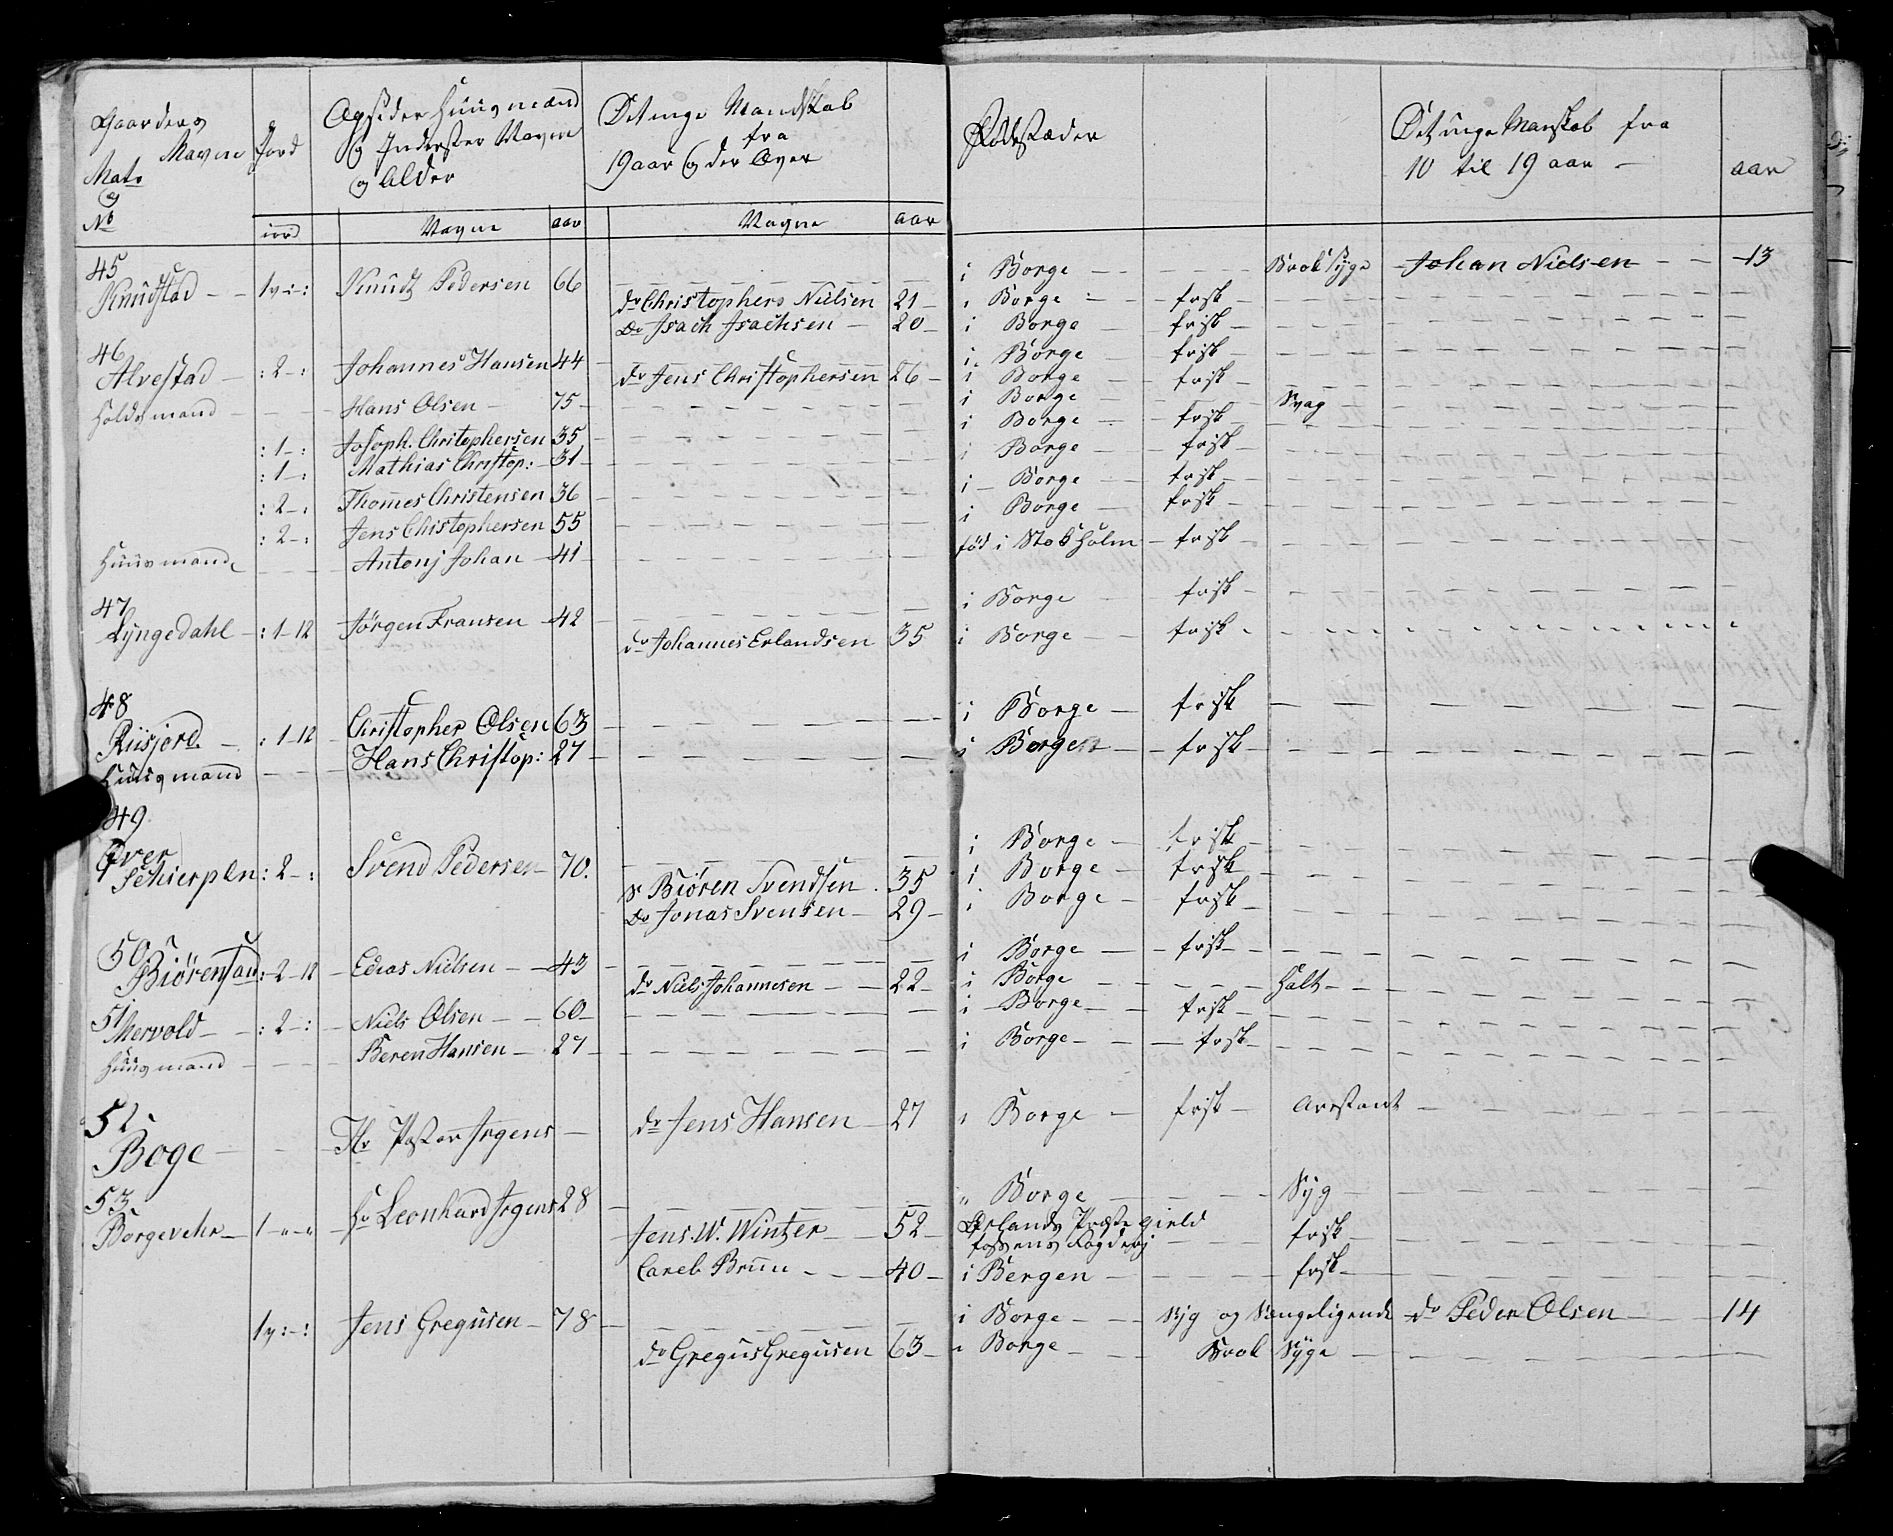 Gaardens
Navne Jord
Mat:
og
No
Huusmænd
og Inderster Navne
og Alder
Det unge Mandskab
fra
19 aar og der Over
Fødestæder
Det unge Manskab fra
10 til 19 aar
aar
Navne aar Navne aar
45
Knudstad Knudt Pedersen 66 i Borge Johan Nielsen 13
do Christophers Nielsen 21 i Borge frisk
Do Isach Isachsen 20 i Borge frisk
46
Alvestad : 2 - : Johannes Hansen 44 i Borge frisk
do Jens Christophersen 26 i Borge frisk
Hans Olsen 75 i Borge Svag
: 1 - : Joseph. Chritophersen 35 i Borge frisk
: 1 - : Mathias Christop: 31 i Borge frisk
: 2 - : Thomes Christensen 36 i Borge frisk
: 2 - : Jens Christophersen 55 i Borge frisk
Huusmand Antonj Johan 41 fød i Stokholm frisk
47
Lyngedahl : 1 - 12 Jørgen Fransen 42 i Borge frisk
do Johannes Erlandsen 35 i Borge frisk
48
Riisjord : 1 - 12 Christopher Olsen 63 i Borge frisk
Huusmand Hans Christop: 27 i Borge frisk
49
Øver
Schierpen : 2 - : Svend Pedersen 70. i Borge frisk
S Biøren Svendsen 35 i Borge frisk
Do Jonas Svensen 29 i Borge frisk
50
Biørensand : 2 - 12 Edias Nielsen 43 i Borge frisk
do Niels Johannesen 22 i Borge Halt
51
Mervold : 2 - : Niels Olsen 60 i Borge frisk
Huusmand Beren Hansen 27 i Borge frisk
52
Boge Hr Pastor Irgens do Jens Hansen 27 i Borge frisk Arestant
53
Borgevehr Hr Leonhard Irgens 28 Borge Syg
Jens. W. Winter 52 Ørlands Præstegield
Fosens Fogderj frisk
Careb Bruun 40 i Bergen frisk
Jens Gregusen 78 i Borge Syg og Sængeligende do Peder Olsen 14
do Gregus Gregusen 63 i Borge Brok Syge